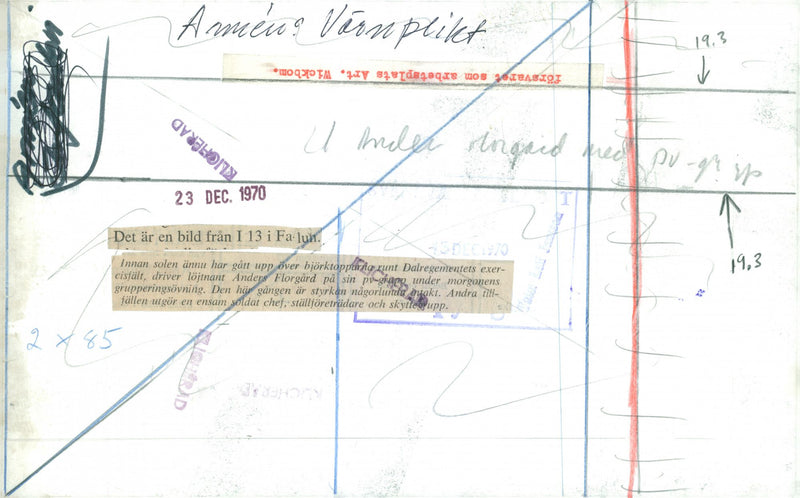 Armén: Värnplikt
19.3
försvaret som arbetsplats Art. Wickbom.
KLICHERAD
Lt Anders Florgård med pv-gr
23 DEC. 1970
19.3
Det är en bild från I 13 i Falun.
Innan solen ännu har gått upp över björktopparna runt Dalregementets exer-
cisfält, driver löjtnant Anders Florgård på sin pv-grupp under morgonens
grupperingsövning. Den här gången är styrkan någorlunda intakt. Andra till-
fällen utgör en ensam soldat chef, ställföreträdare och skyttegrupp.
KLICHERAD
2 x 85
KLICHERAD
KLICHERAD